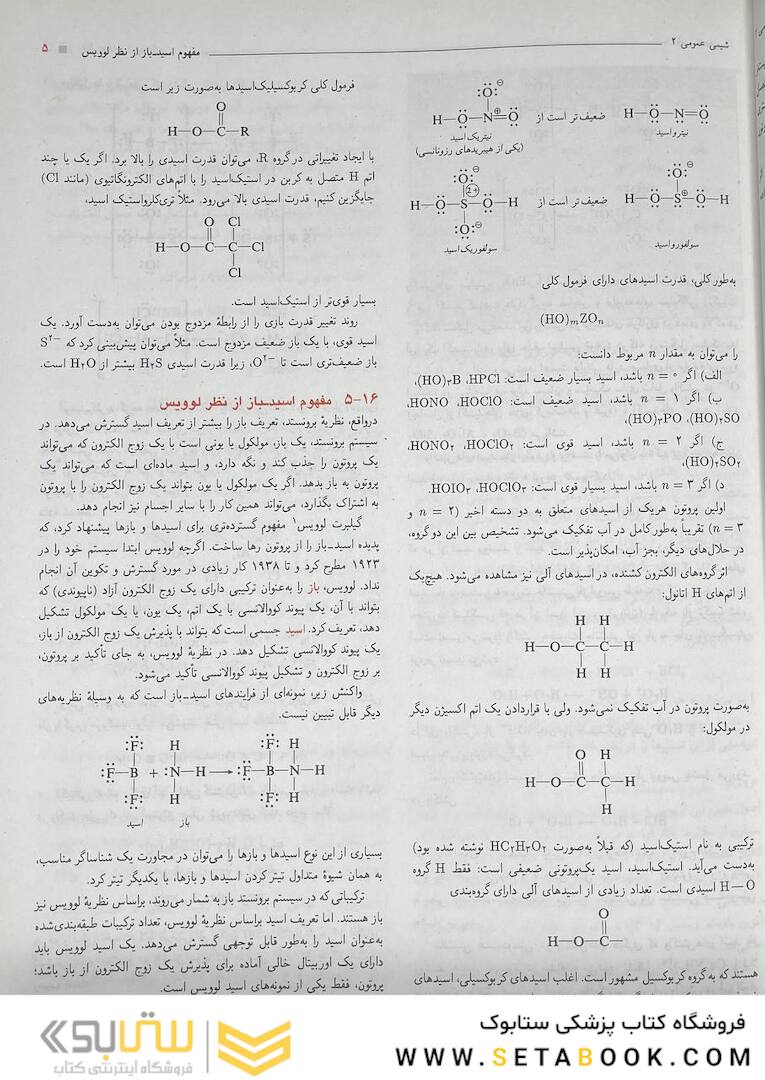 شیمی عمومی ۲
مفهوم اسیدـ‌باز از نظر لوویس
۵
ضعیف‌تر است از
نیترو اسید
نیتریک اسید
(یکی از هیبریدهای رزونانسی)
ضعیف‌تر است از
سولفورو اسید
سولفوریک اسید
به‌طور کلی، قدرت اسیدهای دارای فرمول کلی
(HO)mZOn
را می‌توان به مقدار n مربوط دانست:
الف) اگر n = ۰ باشد، اسید بسیار ضعیف است: HPCl، (HO)۳B،
ب) اگر n = ۱ باشد، اسید ضعیف است: HOClO، HONO،
(HO)۲SO، (HO)۳PO،
ج) اگر n = ۲ باشد، اسید قوی است: HOClO۲، HONO۲،
(HO)۲SO۲،
د) اگر n = ۳ باشد، اسید بسیار قوی است: HOClO۳، HOIO۳.
اولین پروتون هریک از اسیدهای متعلق به دو دسته اخیر (n = ۲ و
n = ۳) تقریباً به‌طور کامل در آب تفکیک می‌شود. تشخیص بین این دو گروه،
در حلال‌های دیگر، بجز آب، امکان‌پذیر است.
اثر گروه‌های الکترون کشنده، در اسیدهای آلی نیز مشاهده می‌شود. هیچ‌یک
از اتم‌های H اتانول:
H H
H—O—C—C—H
H H
به‌صورت پروتون در آب تفکیک نمی‌شود. ولی با قراردادن یک اتم اکسیژن دیگر
در مولکول:
O H
H—O—C—C—H
H
ترکیبی به نام استیک‌اسید (که قبلاً به‌صورت HC۲H۳O۲ نوشته شده بود)
به‌دست می‌آید. استیک‌اسید، اسید یک‌پروتونی ضعیفی است: فقط H گروه
H—O اسیدی است. تعداد زیادی از اسیدهای آلی دارای گروه‌بندی
O
H—O—C—
هستند که به گروه کربوکسیل مشهور است. اغلب اسیدهای کربوکسیلی، اسیدهای
فرمول کلی کربوکسیلیک‌اسیدها به‌صورت زیر است
O
H—O—C—R
با ایجاد تغییراتی در گروه R، می‌توان قدرت اسیدی را بالا برد. اگر یک یا چند
اتم H متصل به کربن در استیک‌اسید را با اتم‌های الکترونگاتیوی (مانند Cl)
جایگزین کنیم، قدرت اسیدی بالا می‌رود. مثلاً تری‌کلرواستیک اسید،
O Cl
H—O—C—C—Cl
Cl
بسیار قوی‌تر از استیک‌اسید است.
روند تغییر قدرت بازی را از رابطهٔ مزدوج بودن می‌توان به‌دست آورد. یک
اسید قوی، با یک باز ضعیف مزدوج است. مثلاً می‌توان پیش‌بینی کرد که S۲−
باز ضعیف‌تری است تا O۲−، زیرا قدرت اسیدی H۲S بیشتر از H۲O است.
۱۶-۵ مفهوم اسیدـ‌باز از نظر لوویس
درواقع، نظریهٔ برونستد، تعریف باز را بیشتر از تعریف اسید گسترش می‌دهد. در
سیستم برونستد، یک باز، مولکول یا یونی است با یک زوج الکترون که می‌تواند
یک پروتون را جذب کند و نگه دارد، و اسید ماده‌ای است که می‌تواند یک
پروتون به باز بدهد. اگر یک مولکول یا یون بتواند یک زوج الکترون را با پروتون
به اشتراک بگذارد، می‌تواند همین کار را با سایر اجسام نیز انجام دهد.
گیلبرت لوویس۱ مفهوم گسترده‌تری برای اسیدها و بازها پیشنهاد کرد، که
پدیده اسیدـ‌باز را از پروتون رها ساخت. اگرچه لوویس ابتدا سیستم خود را در
۱۹۲۳ مطرح کرد و تا ۱۹۳۸ کار زیادی در مورد گسترش و تکوین آن انجام
نداد. لوویس، باز را به‌عنوان ترکیبی دارای یک زوج الکترون آزاد (ناپیوندی) که
بتواند با آن، یک پیوند کووالانسی با یک اتم، یک یون، یا یک مولکول تشکیل
دهد، تعریف کرد. اسید جسمی است که بتواند با پذیرش یک زوج الکترون از باز،
یک پیوند کووالانسی تشکیل دهد. در نظریهٔ لوویس، به جای تأکید بر پروتون،
بر زوج الکترون و تشکیل پیوند کووالانسی تأکید می‌شود.
واکنش زیر، نمونه‌ای از فرایندهای اسیدـ‌باز است که به وسیلهٔ نظریه‌های
دیگر قابل تبیین نیست.
:F: H :F: H
:F—B + :N—H → :F—B—N—H
:F: H :F: H
اسید باز
بسیاری از این نوع اسیدها و بازها را می‌توان در مجاورت یک شناساگر مناسب،
به همان شیوهٔ متداول تیتر کردن اسیدها و بازها، با یکدیگر تیتر کرد.
ترکیباتی که در سیستم برونستد باز به شمار می‌روند، براساس نظریهٔ لوویس نیز
باز هستند. اما تعریف اسید براساس نظریهٔ لوویس، تعداد ترکیبات طبقه‌بندی‌شده
به‌عنوان اسید را به‌طور قابل توجهی گسترش می‌دهد. یک اسید لوویس باید
دارای یک اوربیتال خالی آماده برای پذیرش یک زوج الکترون از باز باشد؛
پروتون، فقط یکی از نمونه‌های اسید لوویس است.
فروشگاه کتاب پزشکی ستابوک
WWW.SETABOOK.COM
ستابوک
فروشگاه اینترنتی کتاب